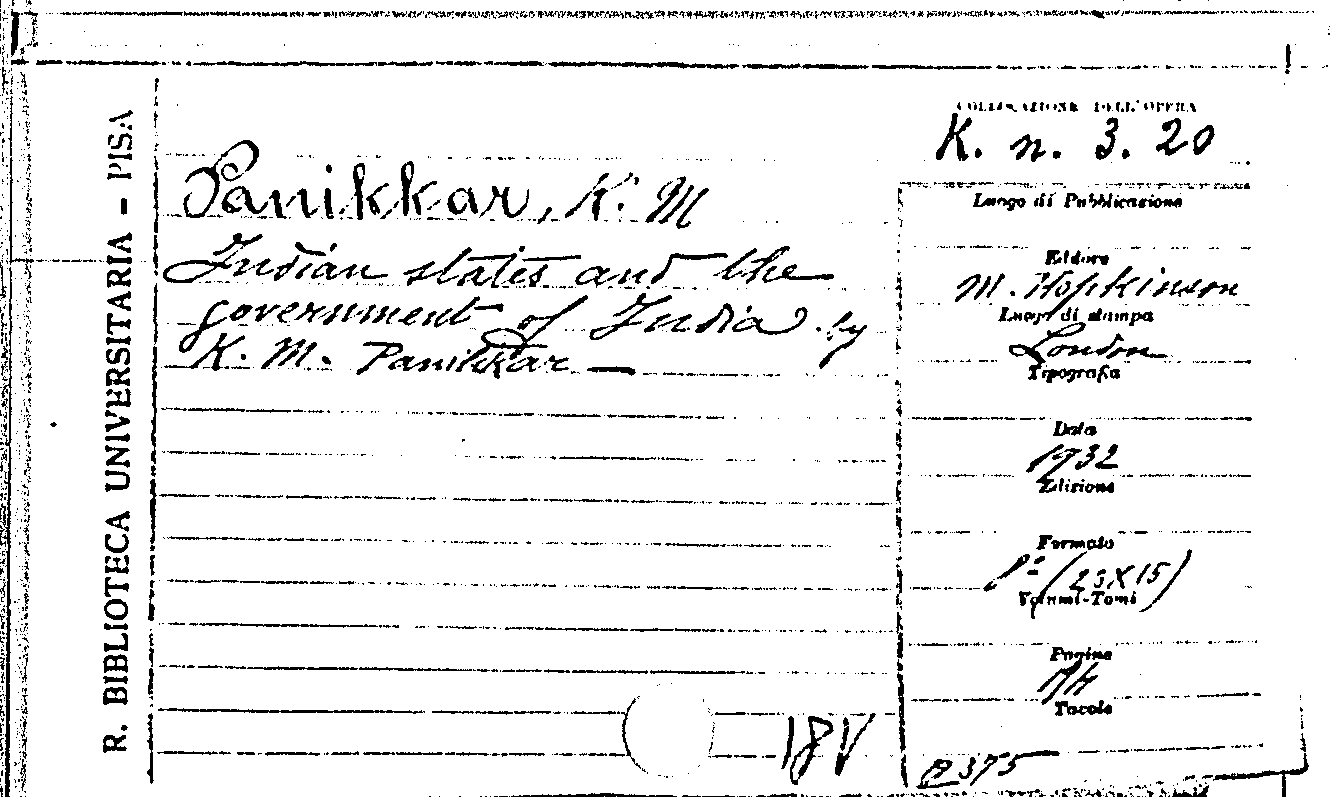 R. BIBLIOTECA UNIVERSITARIA - PISA
COLLOCAZIONE DELL'OPERA
K. n. 3. 20
Panikkar, K. M
Indian states and the
government of India by
K. M. Panikkar —
Luogo di Pubblicazione
Editore
M. Hopkinson
Luogo di stampa
London
Tipografia
Data
1932
Edizione
Formato
(23X15)
Volumi-Tomi
Pagine
Tavole